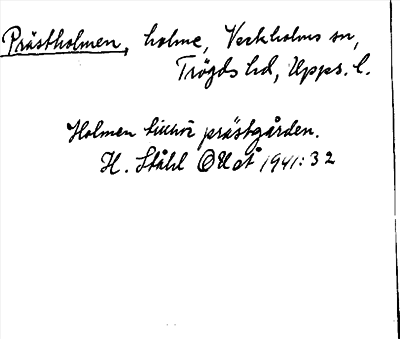 Prästholmen, holme, Veckholms sn,
Trögds hd, Upps. l.
Holmen tillhör prästgården.
H. Ståhl OUat 1941:32